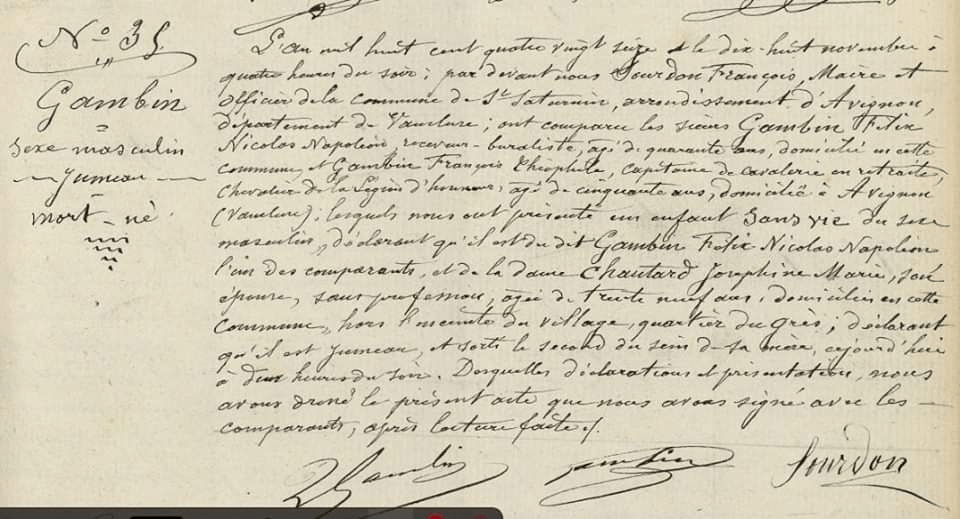 N° 35
Gambin
sexe masculin
jumeau
mort-né.
L'an mil huit cent quatre vingt seize et le dix-huit novembre à
quatre heures du soir; par devant nous Sourdon François, Maire et
officier de la commune de St Saturnin, arrondissement d'Avignon,
département de Vaucluse; ont comparu les sieurs Gambin Felix
Nicolas Napoléon, receveur-buraliste, agé de quarante ans, domicilié en cette
commune, et Gambin François Théophile, capitaine de cavalerie en retraite,
chevalier de la Légion d'honneur, agé de cinquante ans, domicilié à Avignon
(Vaucluse); lesquels nous ont présenté un enfant sans vie du sexe
masculin, déclarant qu'il est du dit Gambin Felix Nicolas Napoléon
l'un des comparants, et de la dame Chautard Josephine Marie, son
épouse, sans profession, agée de trente neuf ans, domiciliés en cette
commune, hors l'enceinte du village, quartier du Grès; déclarant
qu'il est jumeau, et sorti le second du sein de sa mère, aujourd'hui
à deux heures du soir. Desquelles déclarations et présentation, nous
avons dressé le présent acte que nous avons signé avec les
comparants, après lecture faite ./.
Gambin Gambin Sourdon